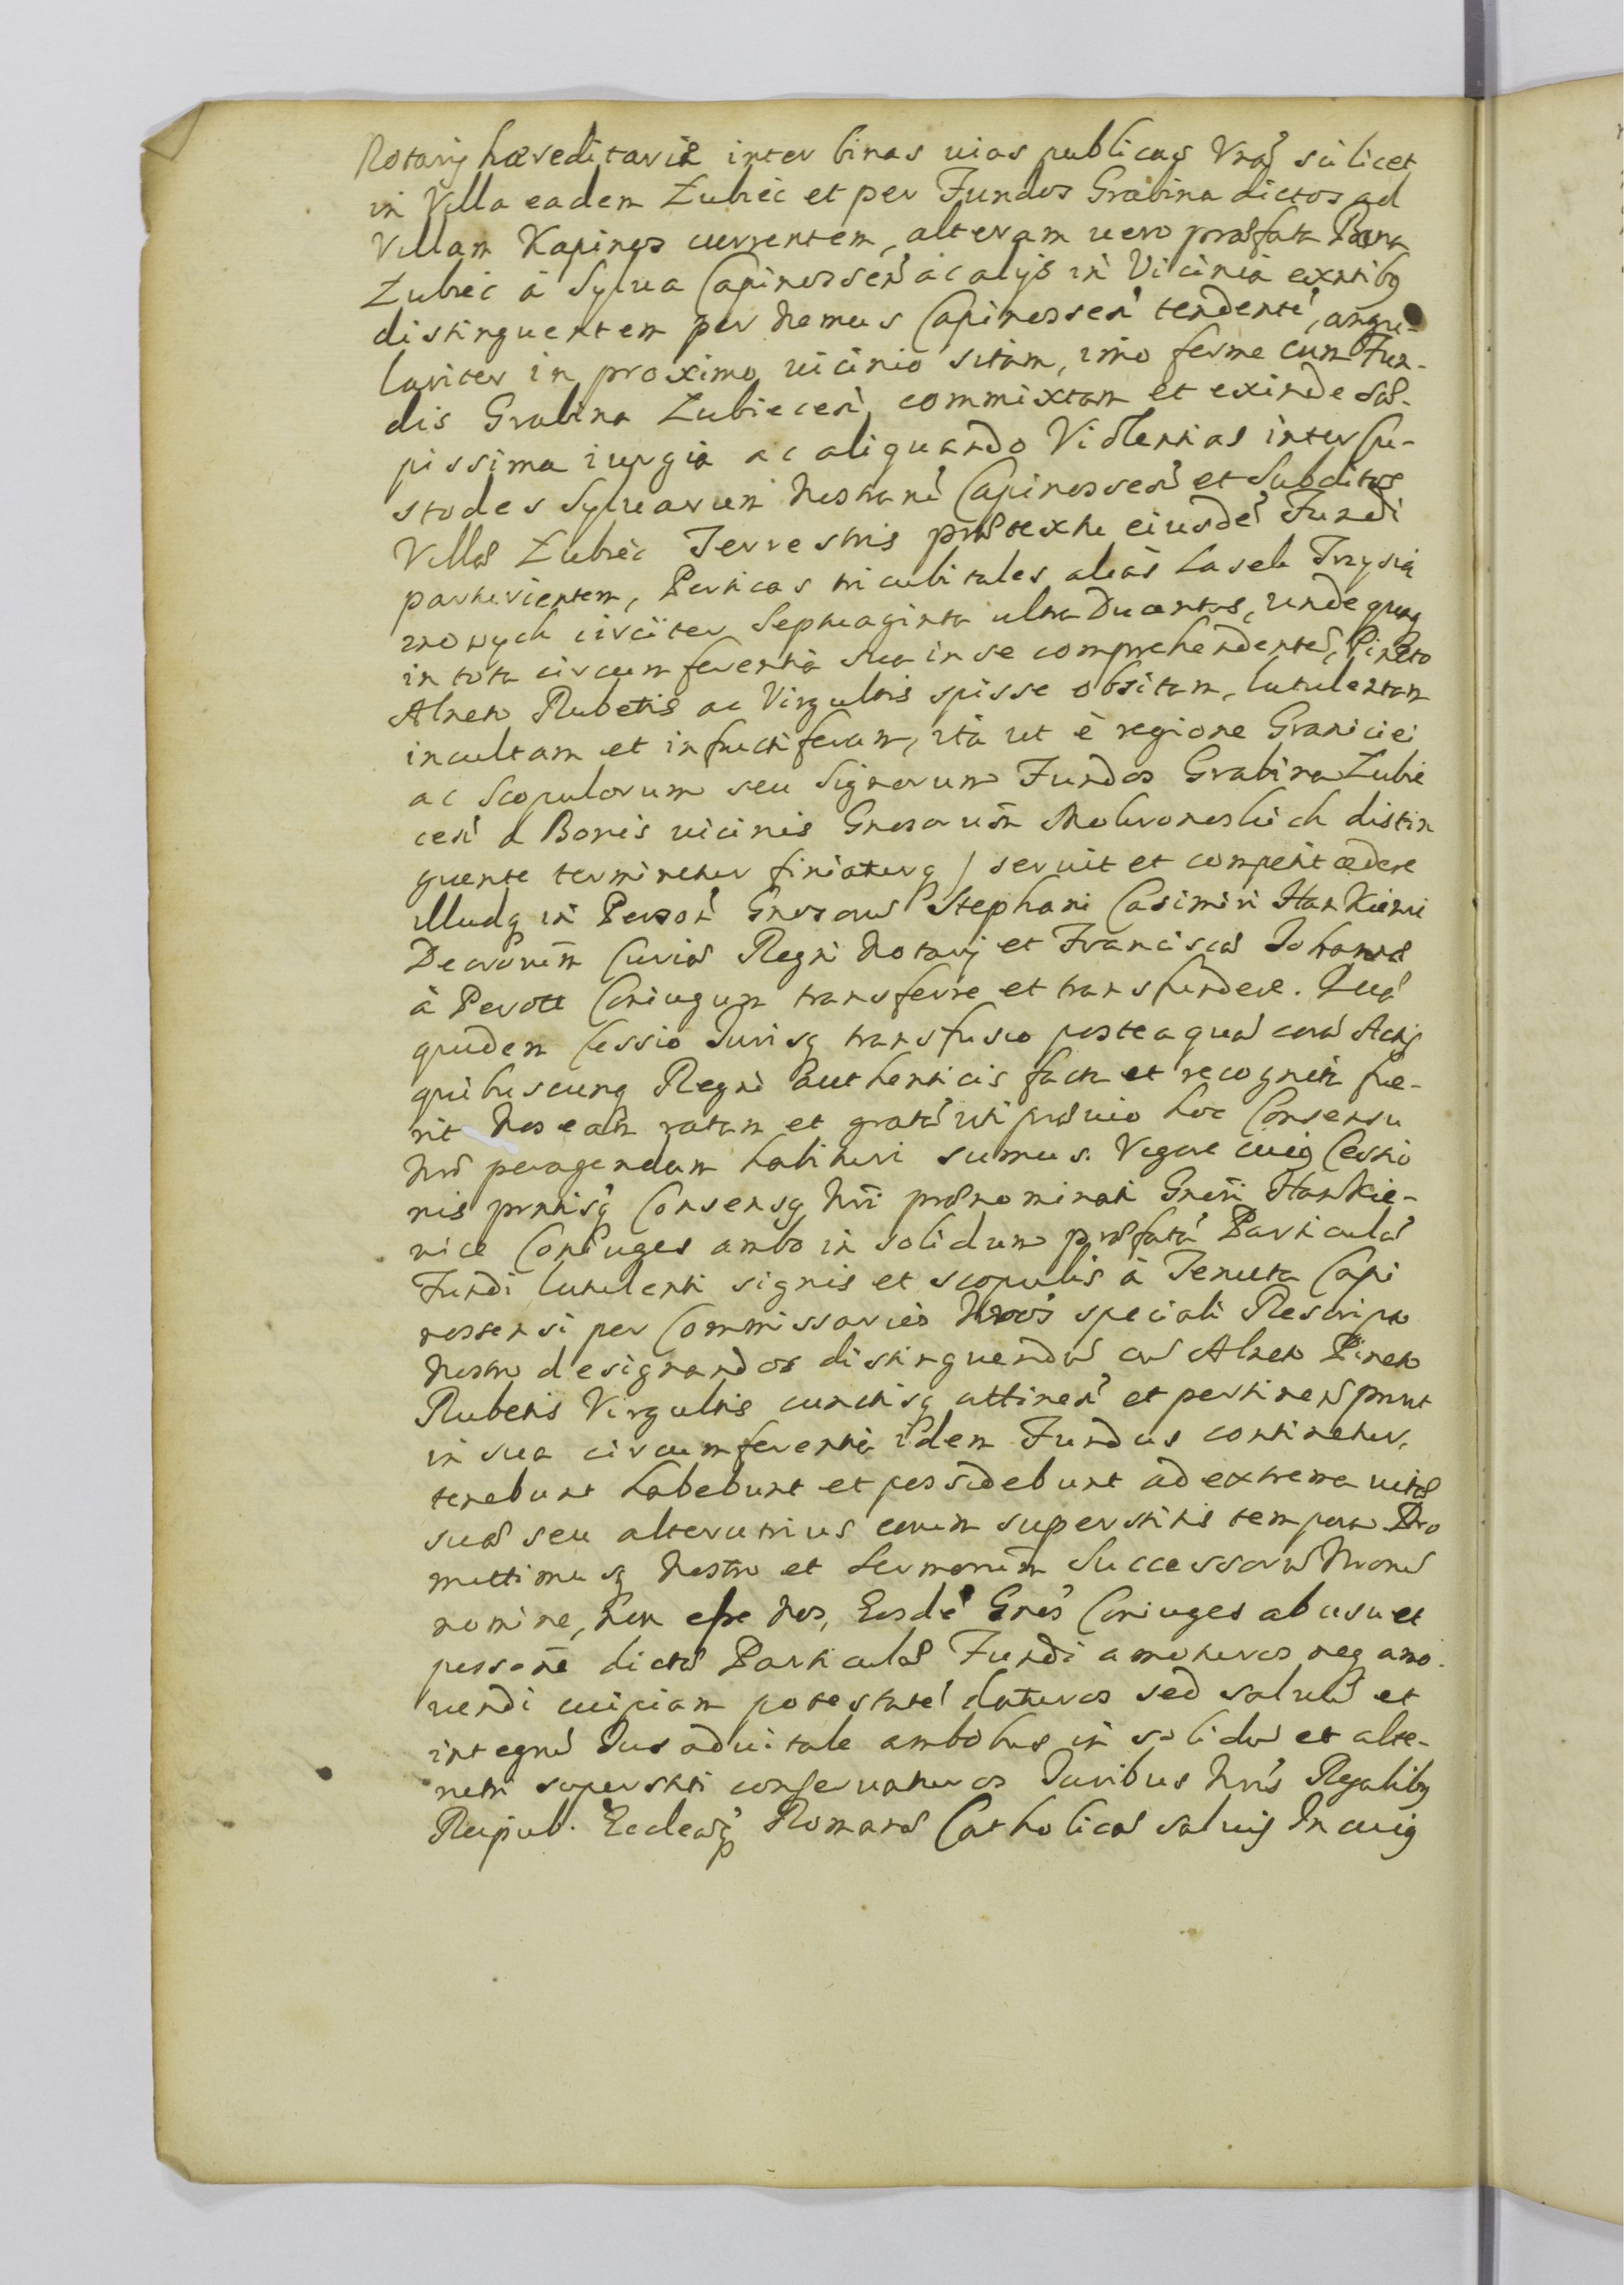 Notarij haereditariâ inter binas uias publicas Vnã scilicet
in Villa eadem Zubiéc et per Fundos Grabina dictos ad
Villam Kapinos currentem, alteram uero praefata Bona
Zubiéc â Sylua Capinossen̄ ac alijs in Vicinia exñtibq
distinguentem per nemus Capinossen̄ tendentē, angu-
lariter in proximo uicinio sitam, imo ferme cum Fun-
dis Grabina Zubiecen̄ commixtam et exinde sae-
pissima iurgia ac aliquando Violentias inter Cu-
stodes Syluarum nostrarū Capinossen̄ et Subditos
Villae Zubiéc Terrestris praetextu eiusdē Fundi
parturientem, Perticas tricubitales aliâs Lasek Trzysią
znowych circiter Septuaginta ultra Ducentas, undequaq
in tota circumferentiâ sua in se comprehendentē, Pineto
Alneto Rubetis ac Virgultis spisse obsitam, lutulentam
incultam et infructiferam, ità ut è regione Graniciei
ac Scopulorum seu Signorum Fundos Grabina Zubie
cen̄ â Bonis uicinis Gnosorūm Mokronoskich distin
guente terminetur finiaturq / seruit et competit cedere
illudq in Person̄ Gnosorū Stephani Casimiri Hankiewi
Decretorūm Curiae Regni Notarij et Franciscae Johannae
â Perott Coniugum transferre et transfundere. Quā
quidem Cessio Jurisq transfusio posteaquā corā Actis
quibuscunq Regni authenticis facta et recognita fue-
rit Nos eām ratam et gratā uti praeuio hoc Consensu
Nrō peragendam habituri sumus. Vigore cuiq Cessio
nis pntisq Consensq Nrī praenominati Gnesī Hankie-
wice Coniuges ambo in solidum praefatā Particulā
Fundi lutulenti signis et scopulis â Tenuta Capi
nossensi per Commissarios Nros speciali Rescripto
Nostro designandos distinguendā cū Alneto Pineto
Rubetis Virgultis cunctisq attinen̄ et pertinen̄ prout
in sua circumferentiâ idem Fundus continetur,
tenebunt habebunt et possidebunt ad extrema uitae
suae seu alterutrius eorum superstitis tempora Pro
mittimusq Nostro et Sermorūm Successorū Nrorū
nomine, Non esse Nos, Eosdē Gnos Coniuges ab usu et
possone dictae Particulae Fundi amoturos neq amo-
uendi cuipiam potestatē daturos sed saluū et
integrū Jus aduitale ambobus in solidū et alte-
rutri superstiti conseruaturos Juribus Nris Regalibq
Reipub. Ecclaeq Romanae Catholicae saluis In cuiq